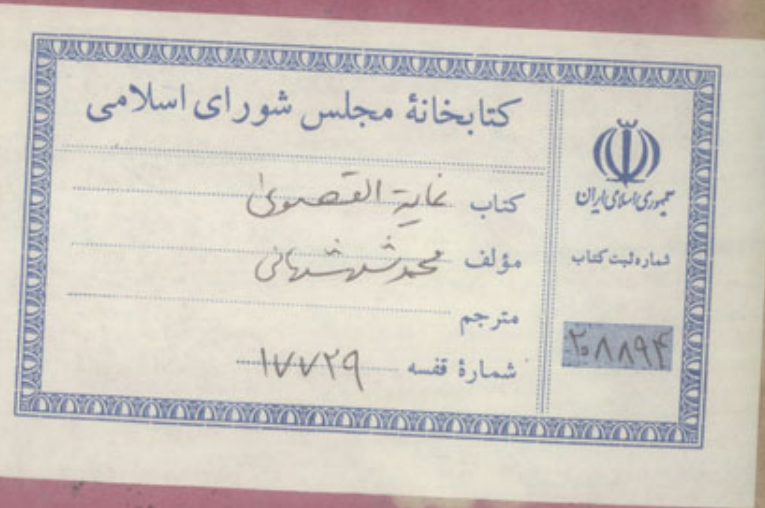 کتابخانهٔ مجلس شورای اسلامی
کتاب غایة القصوی
مؤلف محمد شهشهانی
مترجم
شمارهٔ قفسه ۱۷۷۲۹
جمهوری اسلامی ایران
شماره ثبت کتاب
۲۰۸۸۹۴